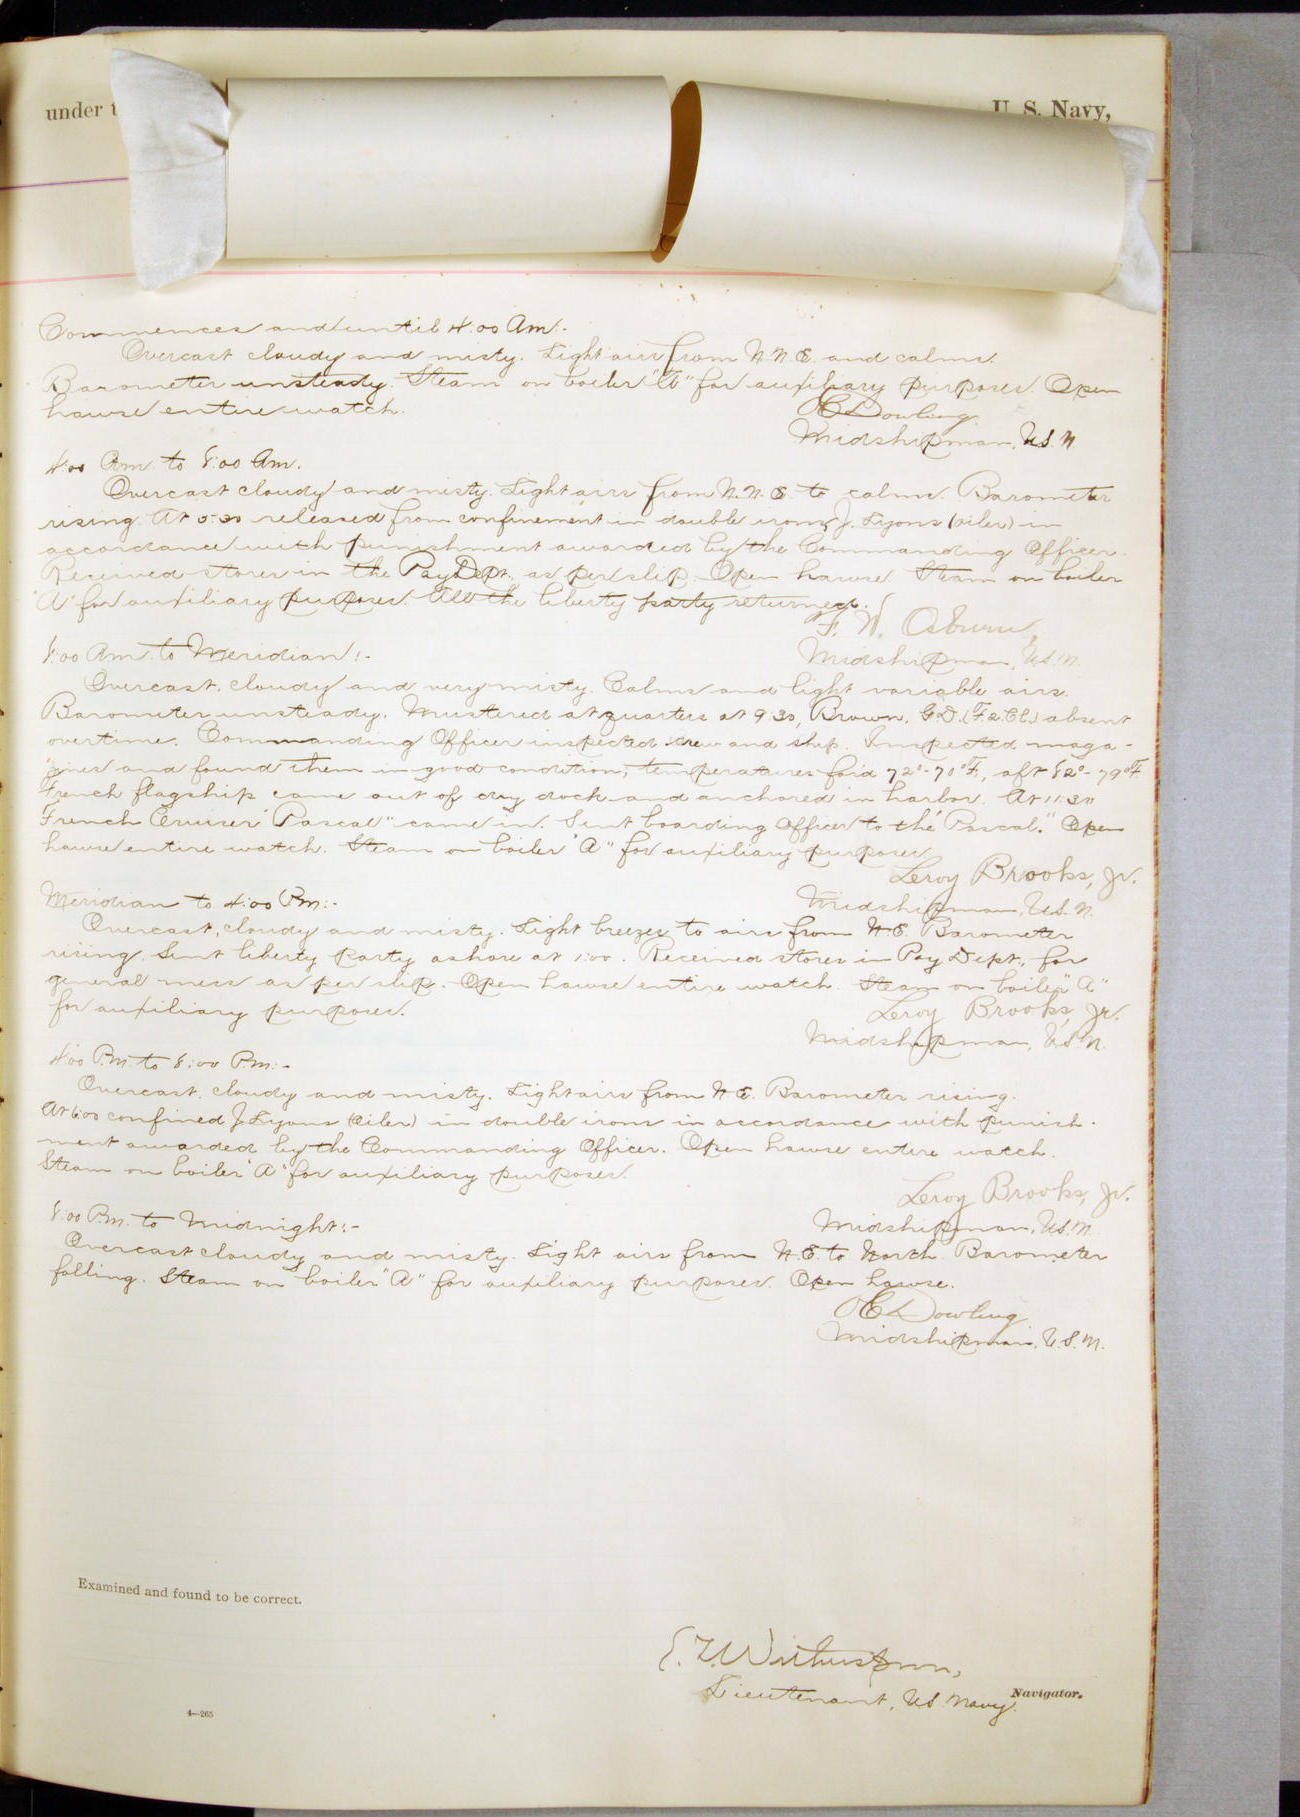 under
U. S. Navy,
Commences and until 4:00 Am:-
Overcast cloudy and misty. Light airs from N.N.E. and calms.
Barometer unsteady. Steam on boiler "A" for auxiliary purposes. Open
hawse entire watch.
Dowling
Midshipman, U.S.N.
4:00 Am. to 8:00 Am.
Overcast cloudy and misty. Light airs from N.N.E. to calms. Barometer
rising. At 5:30 released from confinement in double irons J. Lyons (oiler) in
accordance with punishment awarded by the Commanding Officer.
Received stores in the Pay Dept. as per slip. Open hawse. Steam on boiler
"A" for auxiliary purposes. All the liberty party returned.
F. W. Osburn,
Midshipman, U.S.N.
8:00 Am. to Meridian:-
Overcast, cloudy and very misty. Calms and light variable airs.
Barometer unsteady. Mustered at quarters at 9:30, Brown, G.D. (F.2.Cl.) absent
overtime. Commanding Officer inspected crew and ship. Inspected maga-
zines and found them in good condition; temperatures for'd 72°-70°F, aft 82°-79°F.
French flagship came out of dry dock and anchored in harbor. At 11:30
French Cruiser "Pascal" came in. Sent boarding Officer to the "Pascal." Open
hawse entire watch. Steam on boiler "A" for auxiliary purposes.
Leroy Brooks, Jr.
Midshipman, U.S.N.
Meridian to 4:00 Pm:-
Overcast, cloudy and misty. Light breezes to airs from N.E. Barometer
rising. Sent liberty party ashore at 1:00. Received stores in Pay Dept., for
general mess as per slip. Open hawse entire watch. Steam on boiler "A"
for auxiliary purposes.
Leroy Brooks, Jr.
Midshipman, U.S.N.
4:00 P.m. to 8:00 P.m:-
Overcast, cloudy and misty. Light airs from N.E. Barometer rising.
At 6:00 confined J. Lyons (oiler) in double irons in accordance with punish-
ment awarded by the Commanding Officer. Open hawse entire watch.
Steam on boiler "A" for auxiliary purposes.
Leroy Brooks, Jr.
Midshipman, U.S.N.
8:00 P.m. to Midnight:-
Overcast cloudy and misty. Light airs from N.E. to North. Barometer
falling. Steam on boiler "A" for auxiliary purposes. Open hawse.
Dowling
Midshipman, U.S.N.
Examined and found to be correct.
Lieutenant, U.S. Navy. Navigator.
4—265